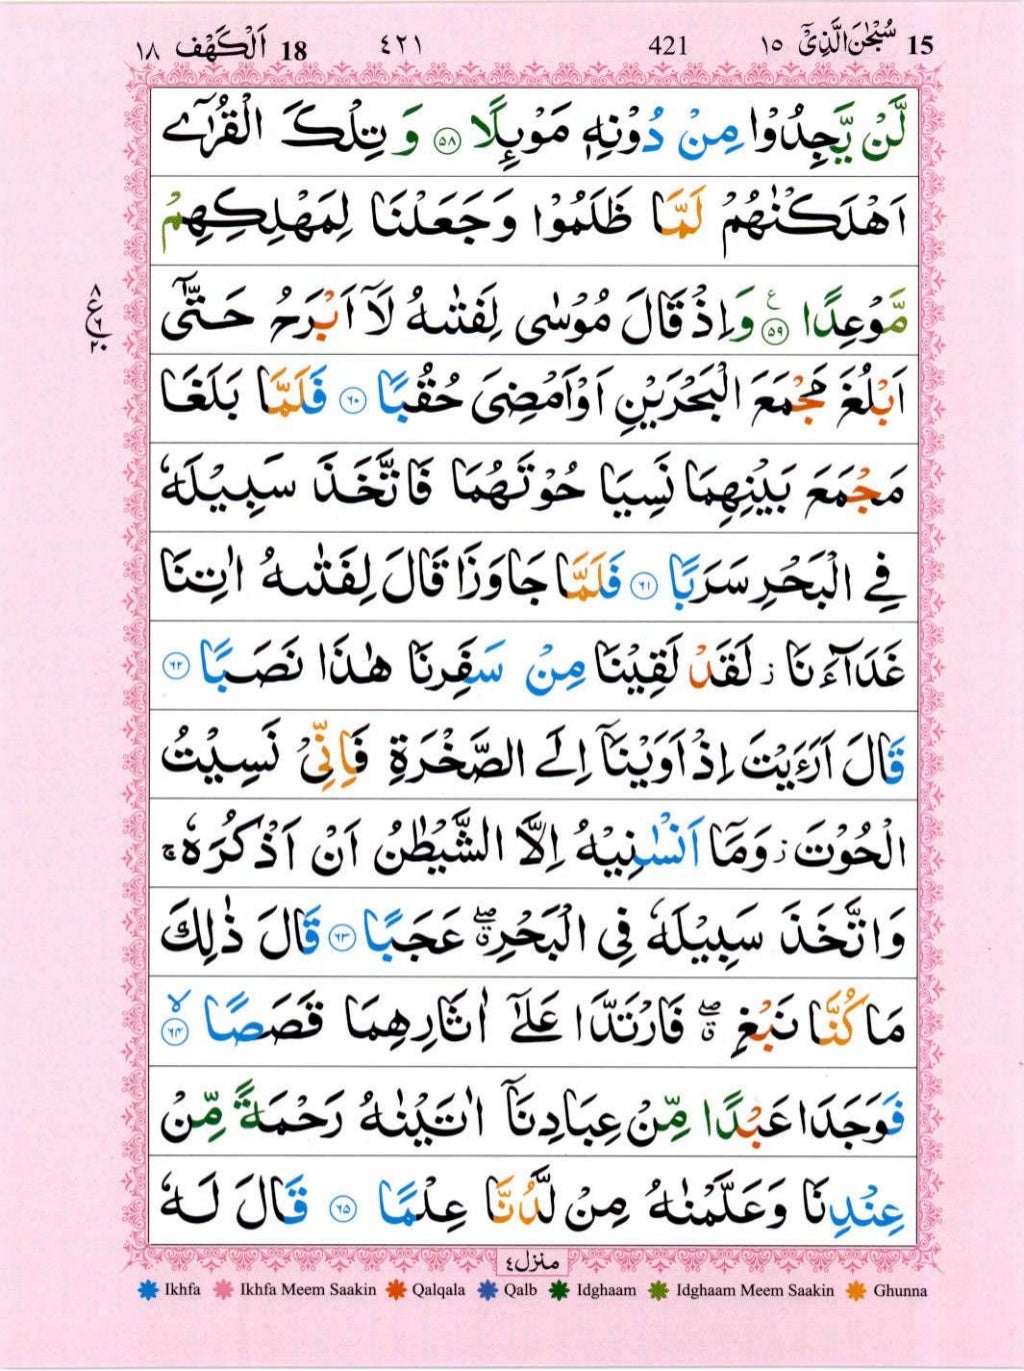 15 سُبْحٰنَ الَّذِیْۤ ١٥ 421 ٤٢١ 18 اَلْكَهْف ١٨
لَّنْ یَّجِدُوْا مِنْ دُوْنِهٖ مَوْىِٕلًا ۝٥٨ وَ تِلْكَ الْقُرٰۤى
اَهْلَكْنٰهُمْ لَمَّا ظَلَمُوْا وَ جَعَلْنَا لِمَهْلِكِهِمْ
مَّوْعِدًا ۝٥٩ ع وَ اِذْ قَالَ مُوْسٰى لِفَتٰىهُ لَاۤ اَبْرَحُ حَتّٰۤى
٨ ع ٦ ٢٠
اَبْلُغَ مَجْمَعَ الْبَحْرَیْنِ اَوْ اَمْضِیَ حُقُبًا ۝٦٠ فَلَمَّا بَلَغَا
مَجْمَعَ بَیْنِهِمَا نَسِیَا حُوْتَهُمَا فَاتَّخَذَ سَبِیْلَهٗ
فِی الْبَحْرِ سَرَبًا ۝٦١ فَلَمَّا جَاوَزَا قَالَ لِفَتٰىهُ اٰتِنَا
غَدَآءَنَا ؗ لَقَدْ لَقِیْنَا مِنْ سَفَرِنَا هٰذَا نَصَبًا ۝٦٢
قَالَ اَرَءَیْتَ اِذْ اَوَیْنَاۤ اِلَى الصَّخْرَةِ فَاِنِّیْ نَسِیْتُ
الْحُوْتَ ؗ وَ مَاۤ اَنْسٰىنِیْهُ اِلَّا الشَّیْطٰنُ اَنْ اَذْكُرَهٗ ۚ
وَ اتَّخَذَ سَبِیْلَهٗ فِی الْبَحْرِ ۖۗ عَجَبًا ۝٦٣ قَالَ ذٰلِكَ
مَا كُنَّا نَبْغِ ۖۗ فَارْتَدَّا عَلٰۤى اٰثَارِهِمَا قَصَصًا ۙ۝٦٤
فَوَجَدَا عَبْدًا مِّنْ عِبَادِنَاۤ اٰتَیْنٰهُ رَحْمَةً مِّنْ
عِنْدِنَا وَ عَلَّمْنٰهُ مِنْ لَّدُنَّا عِلْمًا ۝٦٥ قَالَ لَهٗ
منزل ٤
Ikhfa Ikhfa Meem Saakin Qalqala Qalb Idghaam Idghaam Meem Saakin Ghunna